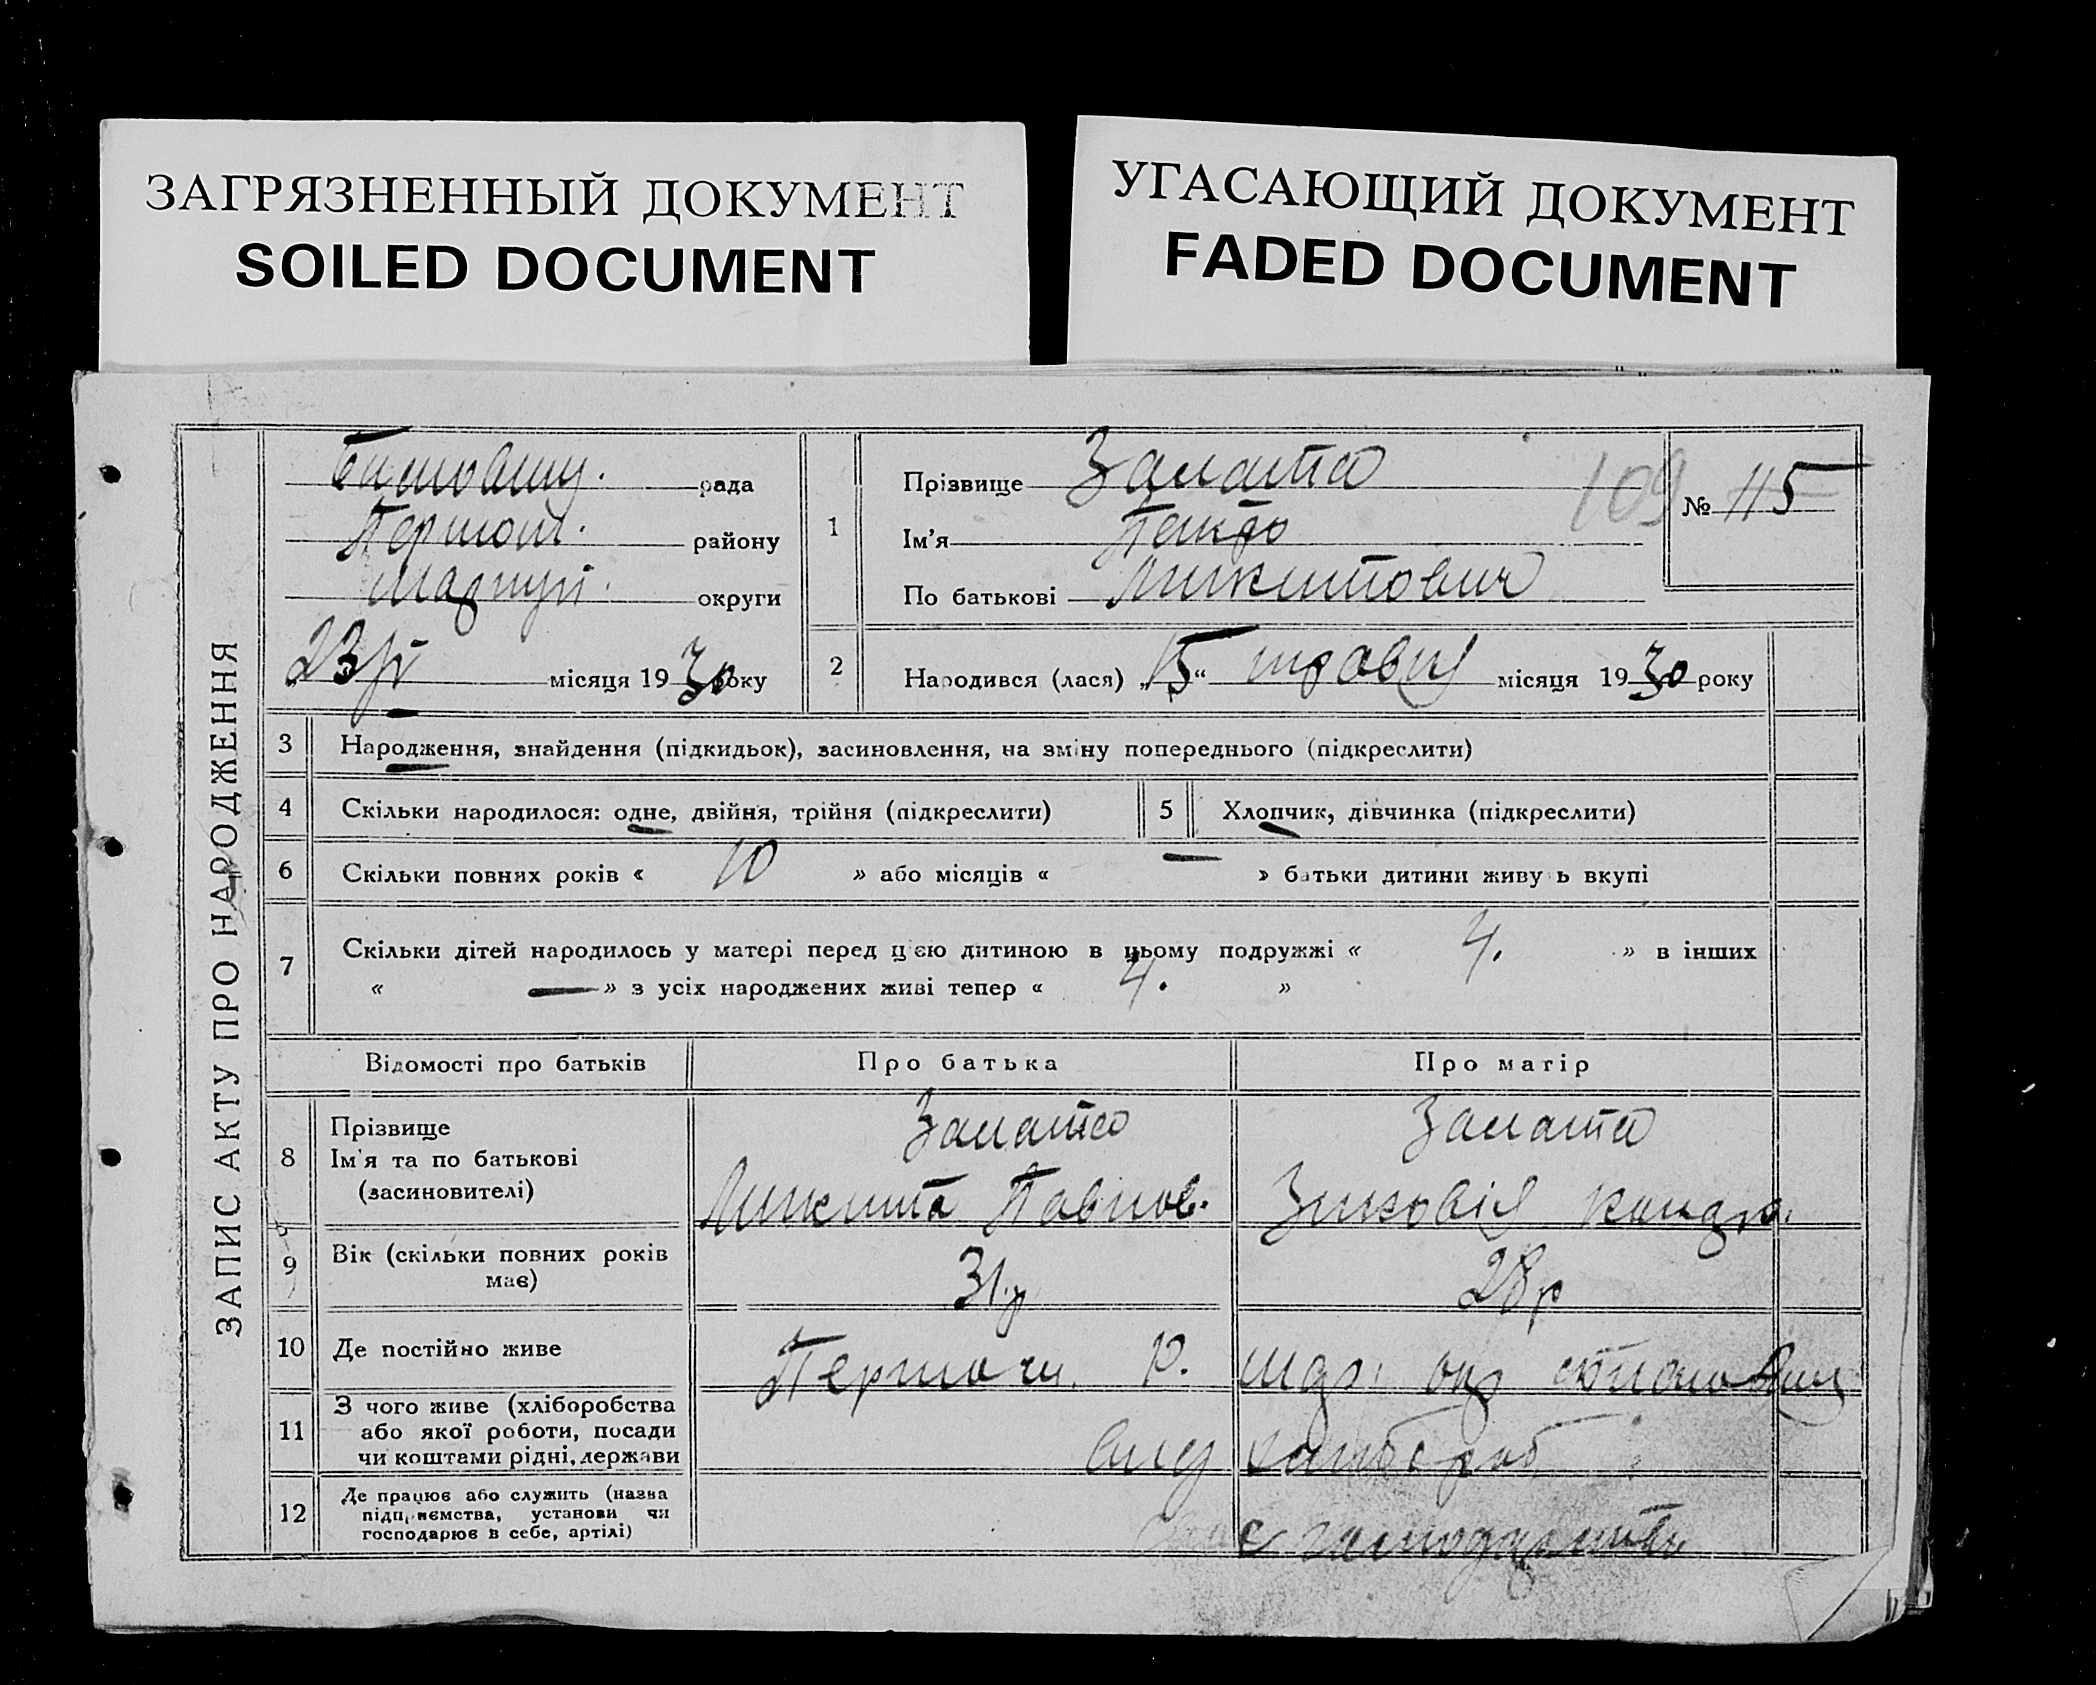 ЗАГРЯЗНЕННЫЙ ДОКУМЕНТ
SOILED DOCUMENT
УГАСАЮЩИЙ ДОКУМЕНТ
FADED DOCUMENT
ЗАПИС АКТУ ПРО НАРОДЖЕННЯ
рада
району
округи
23/VI місяця 1930 року
1
Прізвище Залата
Ім'я
По батькові Микитович
109
№ 115
2 Народився (лася) „15“ травня місяця 1930 року
3 Народження, знайдення (підкидьок), засиновлення, на зміну попереднього (підкреслити)
4 Скільки народилося: одне, двійня, трійня (підкреслити)
5 Хлопчик, дівчинка (підкреслити)
6 Скільки повних років « 10 » або місяців « — » батьки дитини живуть вкупі
7 Скільки дітей народилось у матері перед цією дитиною в цьому подружжі « 4. » в інших
« — » з усіх народжених живі тепер « 4. »
Відомості про батьків Про батька Про матір
8 Прізвище
Ім'я та по батькові
(засиновителі)
Залата
Микита Павлов.
Залата
Зиновія
9 Вік (скільки повних років
має)
31 р
28 р
10 Де постійно живе
р.
11 З чого живе (хліборобства
або якої роботи, посади
чи коштами рідні, держави
12 Де працює або служить (назва
підприємства, установи чи
господарює в себе, артілі)